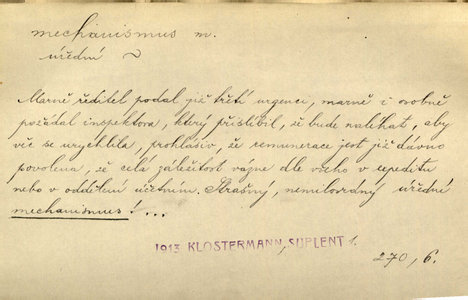 mechanismus m.
úřední ~
Marně ředitel podal již třetí urgenci, marně i osobně
požádal inspektora, který přislíbil, že bude naléhat, aby
věc se urychlila, prohlásiv, že remunerace jest již dávno
povolena, že celá záležitost vázne dle všeho v expeditu
nebo v oddělení účetním. Strašný, nemilosrdný úřední
mechanismus!...
1913 KLOSTERMANN, SUPLENT 1.
270, 6.